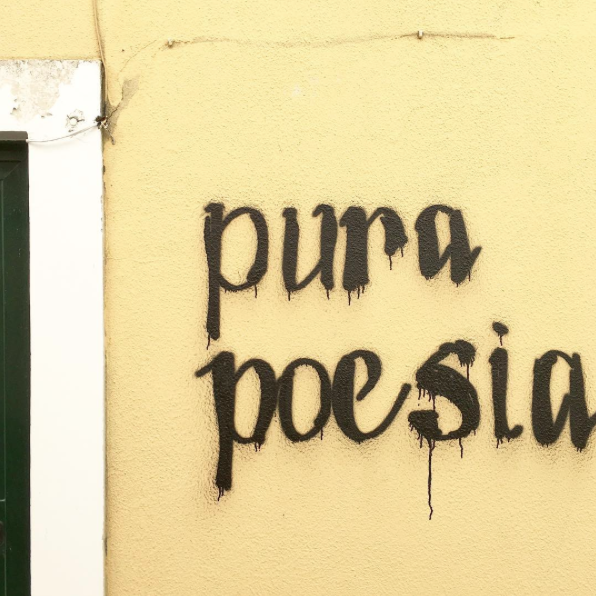 pura
poesia